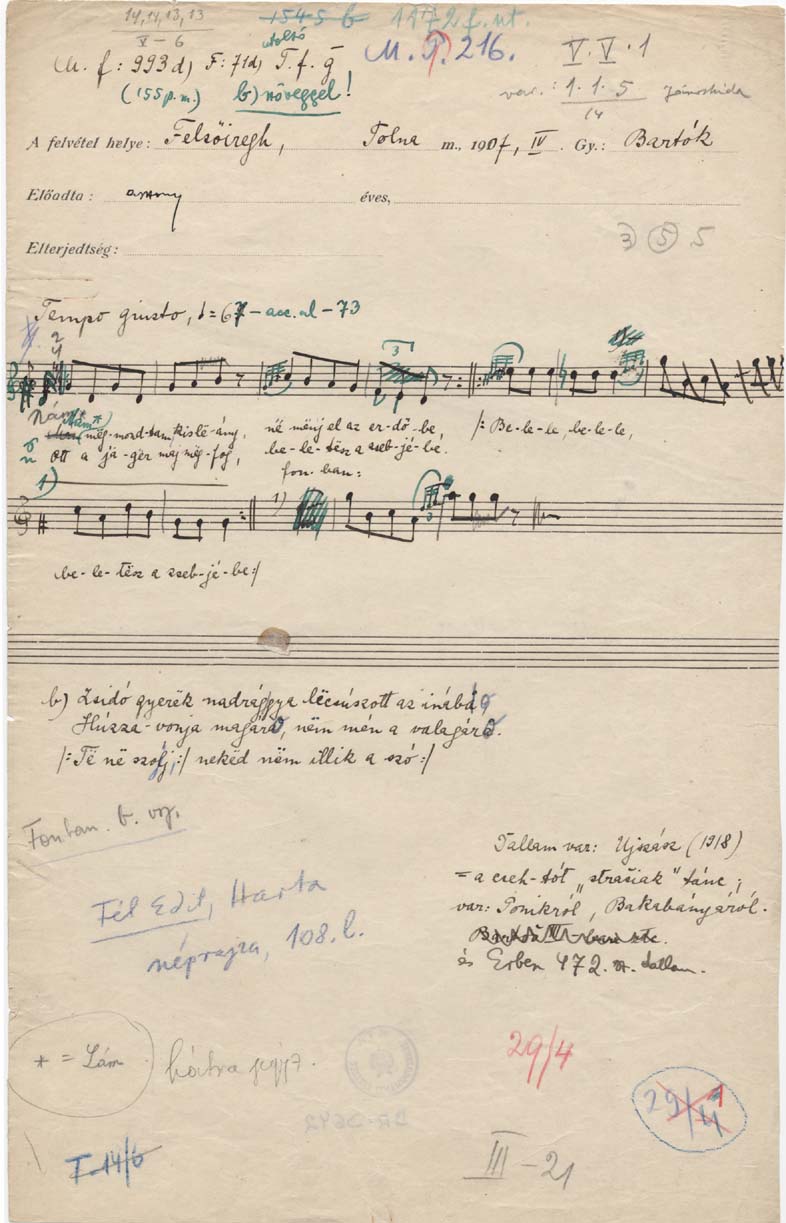 14,14,13,13
V – 6
1545 b 1172 f. nt.
utolsó
M. f: 993d) F: 71d) T. f. g
M. P. 216.
V. V. 1
(155 p. m.) b) szöveggel!
var.: 1. 1. 5 Jánoshida
14
A felvétel helye: Felsőiregh, Tolna m., 1907, IV. Gy.: Bartók
Előadta: asszony éves,
Elterjedtség:
3) 5 5
Tempo giusto, = 67 – acc. al – 73
2
4
3
Nám*
még-mond-tam, kis lë-ány, në mënj el az er-dő-be, /: Be-le-le, be-le-le,
Ott a já-ger maj mëg-fog, be-le-tësz a zseb-jé-be.
1) fon-ban:
1)
3
be-le-tësz a zseb-jé-be:/
b) Zsidó gyerëk nadrággya lëcsúszott az inába,
Húzza-vonja magára, nëm mén a valagára.
/: Të në szólj, :/ nekëd nëm illik a szó:/
Fonban b. voz.
Fél Edit, Harta
néprajza, 108. l.
Dallam var: Ujszász (1918)
= a cseh-tót „strašiak" tánc;
var: Ponikról, Bakabányáról.
és Erben 472. sz. dallam.
* = Lám
hátra
29/4
29/4
I 14/b
III – 21